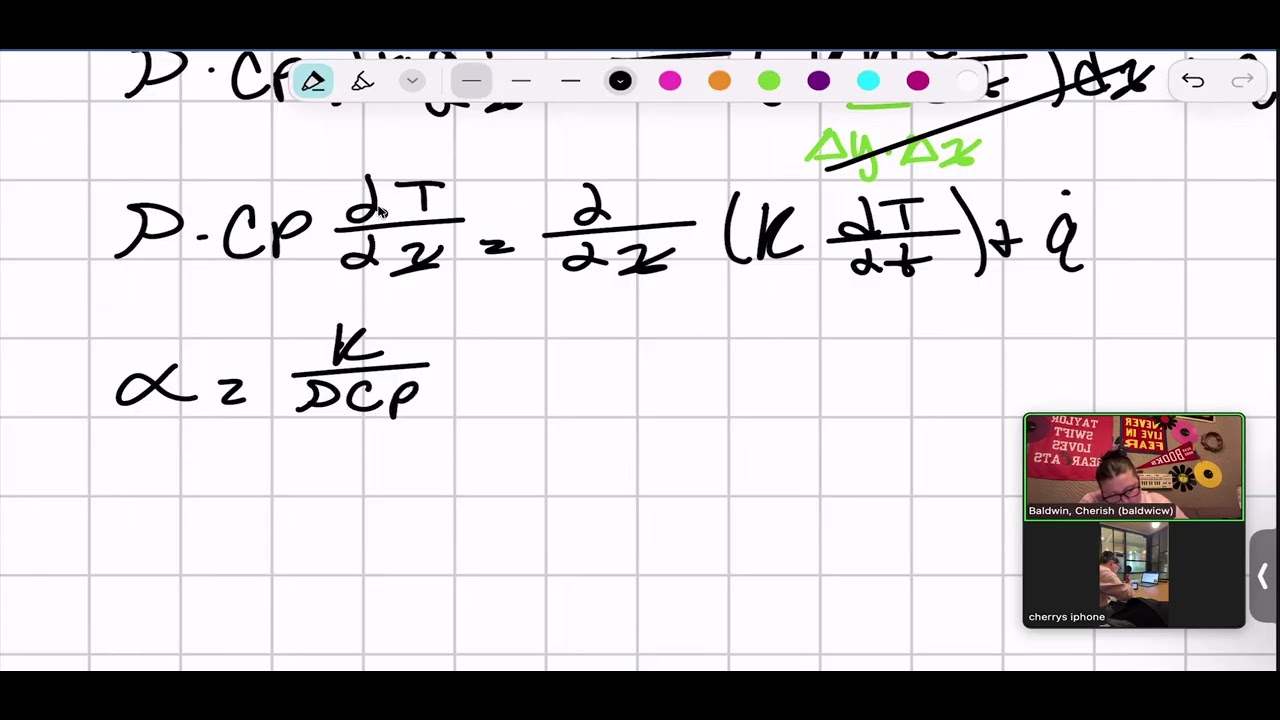 Δy·Δx
ρ·Cp ∂T/∂x = ∂/∂x (K ∂T/∂t) + q̇
α = K/ρCp
TAYLOR SWIFT LOVES BEARCATS
NEVER LIVE IN FEAR
BOOKS
Baldwin, Cherish (baldwicw)
cherrys iphone